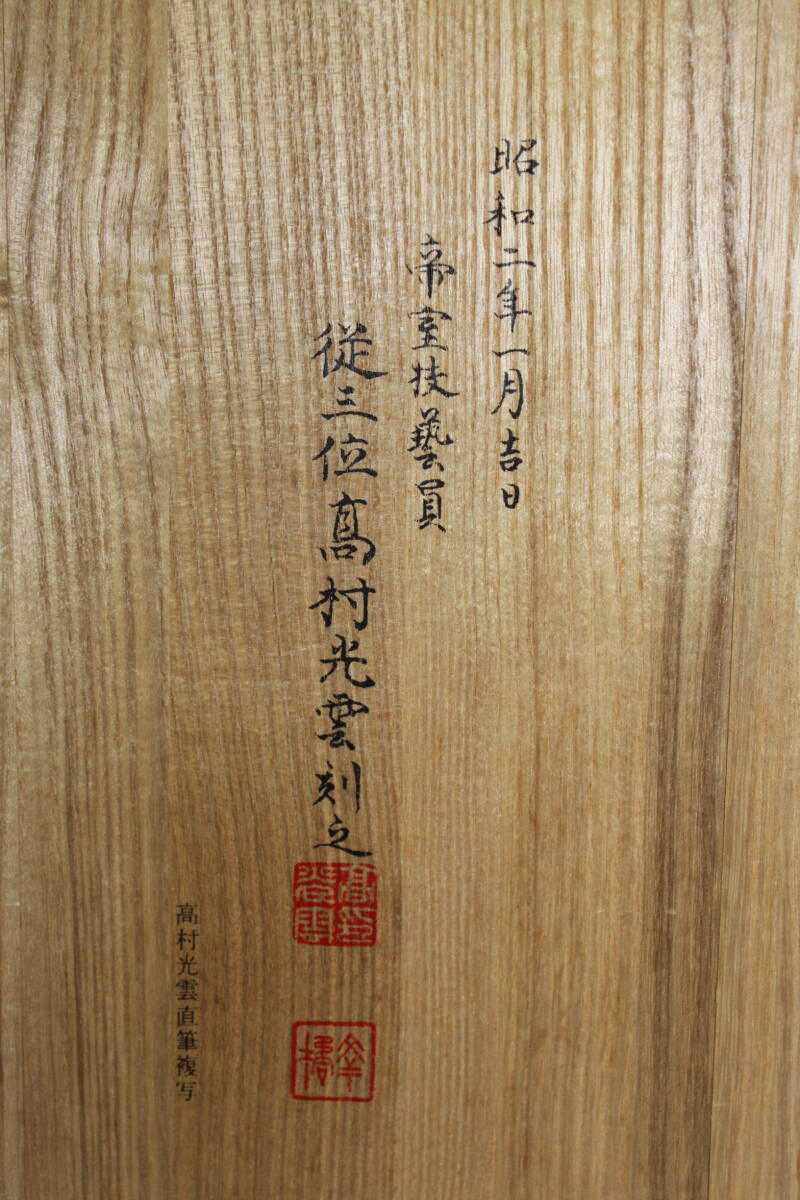 昭和二年一月吉日
帝室技藝員
従三位髙村光雲刻之
高村光雲直筆複写